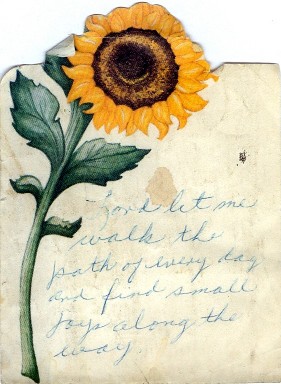 Lord let me
walk the
path of every day
and find small
joys along the
way.